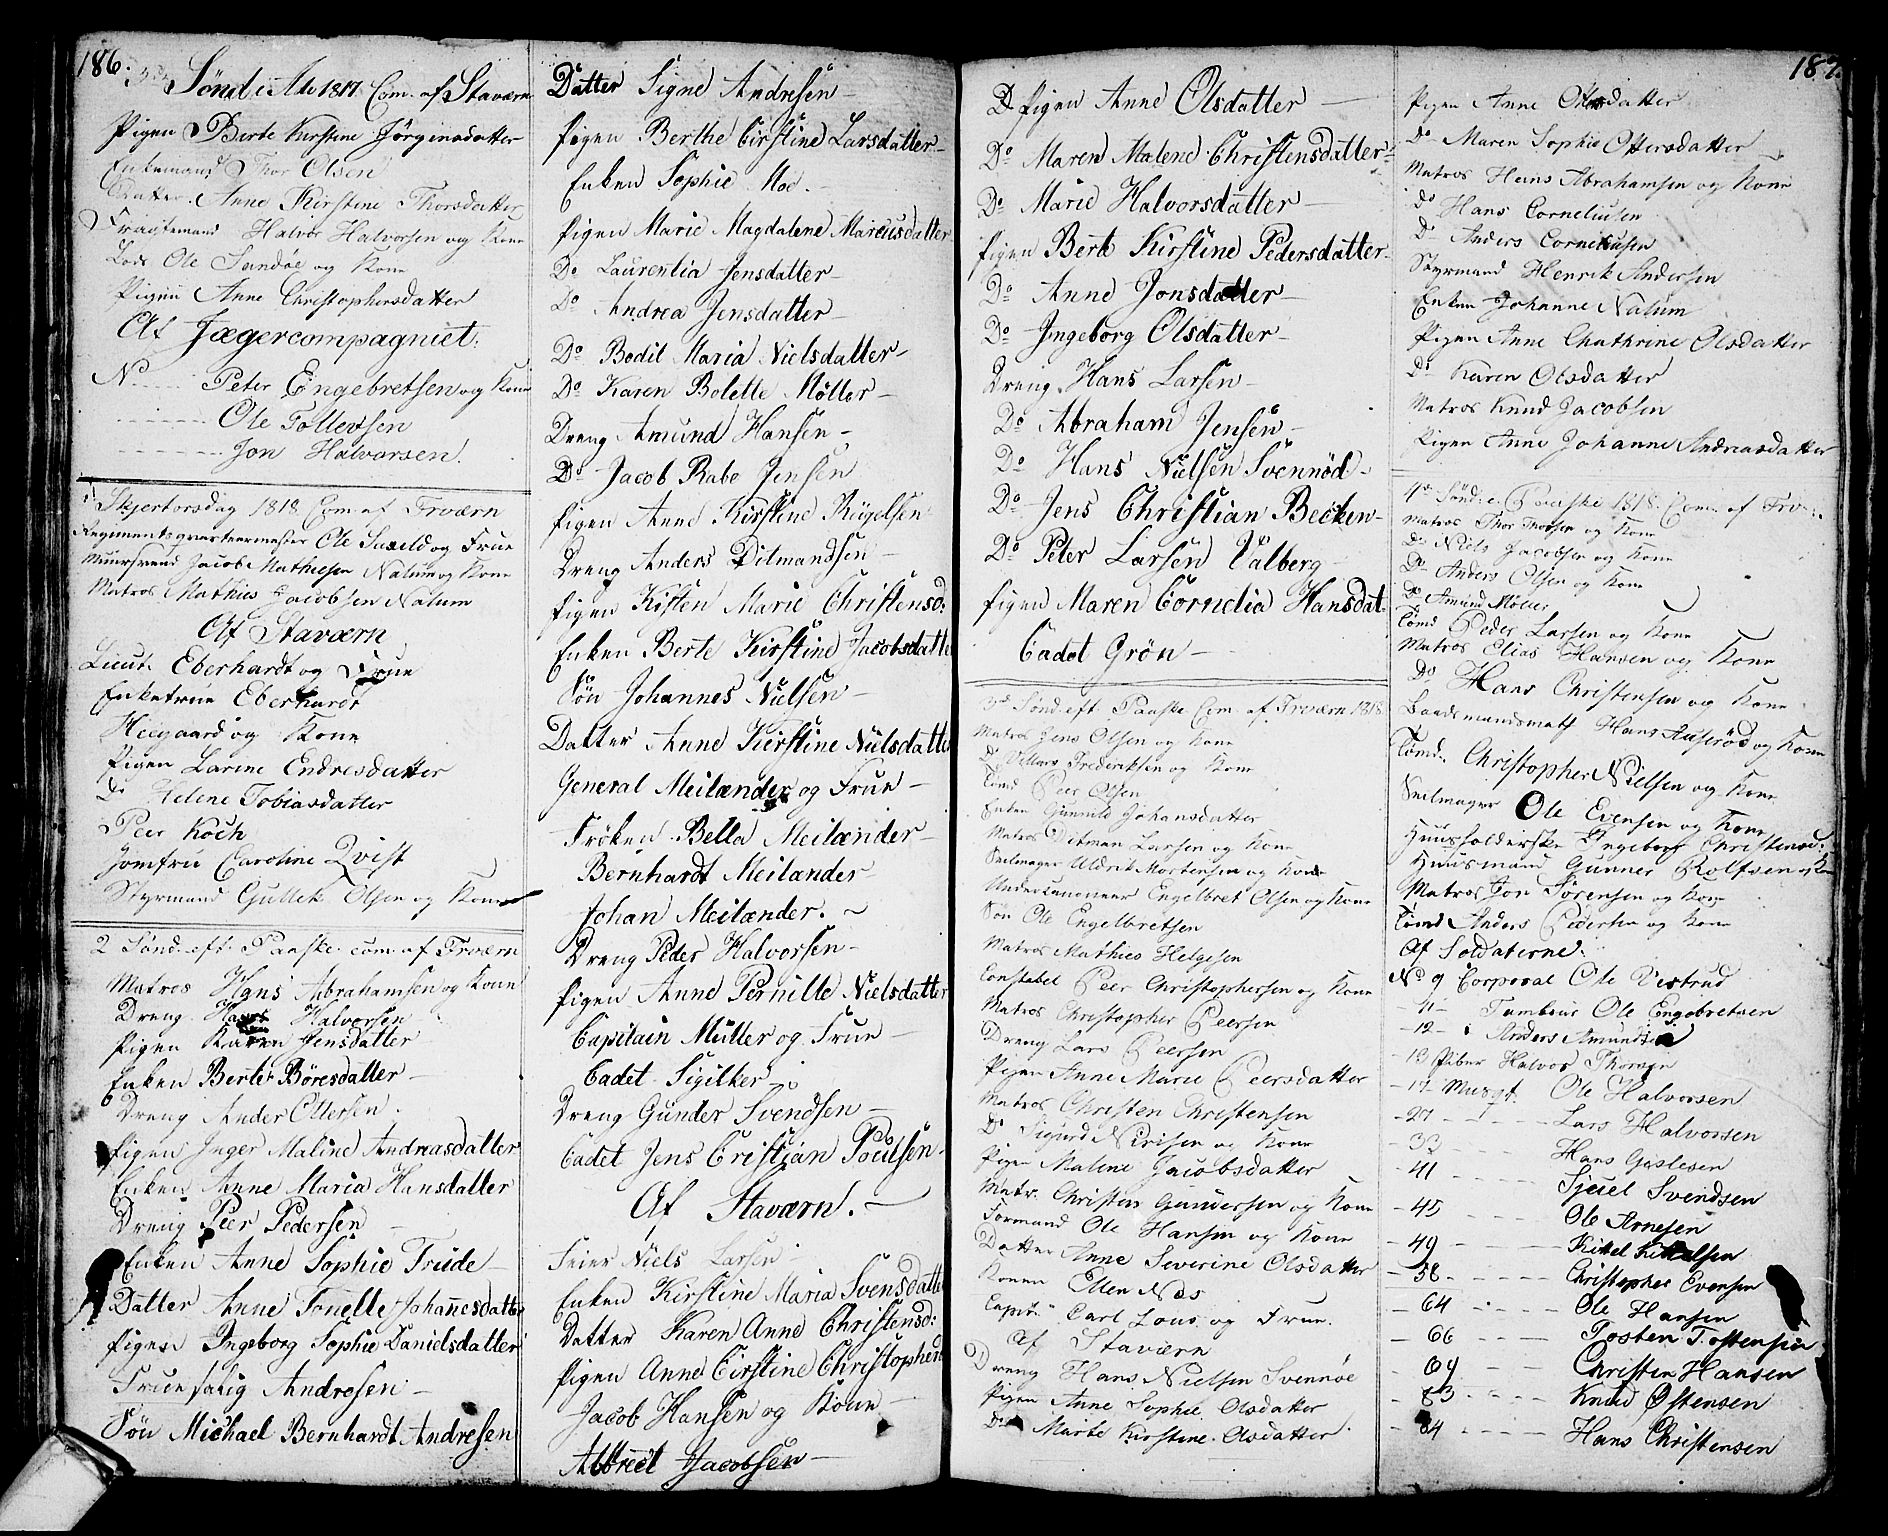 186.
Sönd i Ade 1817 Com. af Staværn
Pigen Berte Kirstine Jörginsdatter
Enkemand Thor Olsen
Datter Anne Kirstine Thorsdatter
Halvor Halvorsen og Kone
Lods Ole Sundöe og Kone
Pigen Anne Christophersdatter
Af Jægercompagniet.
N Peter Engebretsen og Kone
Ole Tollevsen
Jon Halvorsen.
Skjertorsdag 1818 Com. af Frværn
Regimentsqvarteermester Ole og Frue
Muursvend Jacob Mathiesen Nalum og Kone
Matros Mathies Jacobsen Nalum
Af Staværn
Lieut. Eberhardt og Frue
Enkefrue Eberhardt
Heegaard og Kone
Pigen Larine Endresdatter
Do Helene Tobiasdatter
Peer Koch
Jomfru Caroline Qvist
Styrmand Gullek Olsen og Kone
2 Sönd. eft. Paaske com. af Frværn
Matros Hans Abrahamsen og Kone
Dreng Halvorsen
Pigen Karen Jensdatter
Enken Berte Böresdatter
Dreng Ander Ottersen
Pigen Inger Maline Andreasdatter
Enken Anne Maria Hansdatter
Dreng Peer Pedersen
Enken Anne Sophie Trude
Datter Anne Tonette Johannesdatter
Pigen Ingeborg Sophie Danielsdatter
Frue salig Andresen
Sön Michael Bernhardt Andresen
Datter Signe Andresen
Pigen Berthe Cirstine Larsdatter
Enken Sophie Moe.
Pigen Marie Magdalene Marcusdatter
Do Laurentia Jensdatter
Do Andrea Jensdatter
Do Bodil Maria Nielsdatter
Do Karen Bolette Möller
Dreng Amund Hansen
Do Jacob Rabe Jensen
Pigen Anne Kirstine Rügelsen
Dreng Anders Ditmandsen
Pigen Kisten Marie Christensd:
Enken Berte Kirstine Jacobsdatte
Sön Johannes Nielsen
Datter Anne Kirstine Nielsdatte
General Meilænder og Frue
Fröken Bella Meilænder
Bernhardt Meilænder
Johan Meilænder.
Dreng Peder Halvorsen
Pigen Anne Pernille Nielsdatter
Capitain Müller og Frue
Cadet Sigilker
Dreng Gunder Svendsen
Cadet Jens Cristian Poulsen
Af Staværn.
Feier Niels Larsen
Enken Kirstine Maria Svensdatte
Datter Karen Anne Christensd:
Pigen Anne Cirstine Christophers
Jacob Hansen og Kone
Albreet Jacobsen
187.
Pigen Anne Olsdatter
Do Maren Malene Christensdatter
Do Marie Halvorsdatter
Pigen Berte Kirstine Pedersdatter
Do Anne Jonsdatter
Do Ingeborg Olsdatter
Dreng Hans Larsen
Do Abraham Jensen
Do Hans Nielsen Svennöd
Do Jens Christian Becken
Do Peter Larsen Valberg
Pigen Maren Cornelia Hansdat.
Cadet Grön
3 Sönd. eft Paaske Com. af Frværn 1818
Matros Jens Olsen og Kone
Do Frederiksen og Kone
Tömd Peer Olsen
Enken Gunnild Johansdatter
Matros Ditman Larsen og Kone
Seilmager Uldrik Mortensen og Kone
Underkanoneer Engelbret Olsen og Kone
Sön Ole Engelbretsen
Matros Mathies Helgesen
Constabel Peer Christophersen og Kone
Matros Christopher Peersen
Dreng Lars Peersen
Pigen Anne Marie Peersdatter
Matros Christen Christensen
Do Sigurd og Kone
Pigen Maline Jacobsdatter
Matr. Christen Gundersen og Kone
Formand Ole Hansen og Kone
Datter Anne Severine Olsdatter
Konen Ellen Næs
Capt. Carl Lous og Frue.
Af Staværn
Dreng Hans Nielsen Svennöe
Pigen Anne Sophie Olsdatter
Do Marte Kirstine Olsdatter
Pigen Anne datter
Do Maren Sophie Ottersdatter
Matros Hans Abrahamsen og Kone
Do Hans Corneliusen
Do Anders Corneliusen
Styrmand Henrik Andersen
Enken Johanne Nalum
Pigen Anne Chathrine Olsdatter
Do Karen Olsdatter
Matros Knud Jacobsen
Pigen Anne Johanne Andreasdatter
4 Sönd. e. Paaske 1818 Com. af Frv
Matros Thor Thorsen og Kone
Do Niels Jacobsen og Kone
Do Anders Olsen og Kone
Do Amund Möller
Tömd Peder Larsen og Kone
Matros Elias Hansen og Kone
Do Hans Christensen og Kone
Baadsmandsmatt Hans Aaseröd og Kone
Tömd. Christopher Nielsen og Kone
Seilmager Ole Evensen og Kone
Huusholderske Ingeborg Christensd.
Huusmand Gunner Rolfsen og Ko
Matros Jon Sörensen og Kone
Tömd Anders Pedersen og Kone
Af Soldaterne.
No 9 Corporal Ole Vestrud
11 Tambour Ole Engebretsen
12 Anders Amundsen
13 Piber Halvor Thorsen
17 Musqt. Ole Halvorsen
27 Lars Halvorsen
33 Hans Gislesen
41 Sjuel Svendsen
45 Ole Arnesen
49 Kittel Kittelsen
58 Christopher Evensen
64 Ole Hansen
66 Tosten Tostensen
69 Christen Hansen
83 Knud Östensen
84 Hans Christensen